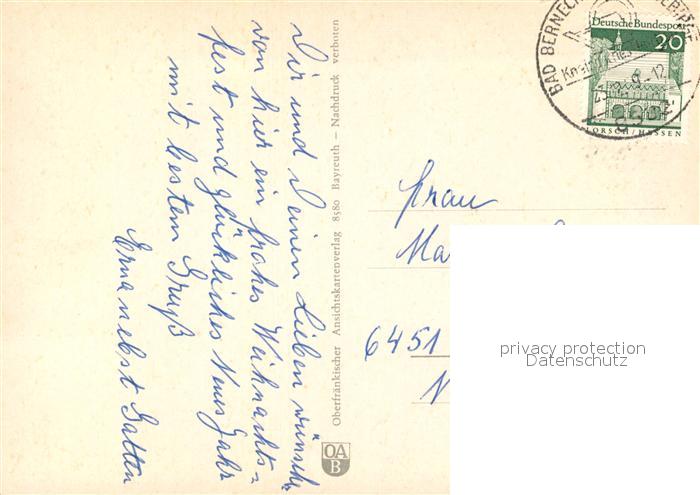 Dir und Deinen Lieben wünsche
von hier ein frohes Weihnachts=
fest und glückliches Neues Jahr
mit bestem Gruß
Erna nebst Gatten
Oberfränkischer Ansichtskartenverlag 8580 Bayreuth — Nachdruck verboten
OA
B
BAD BERNECK
Deutsche Bundespost
20
LORSCH/HESSEN
Frau
Ma
6451
privacy protection
Datenschutz